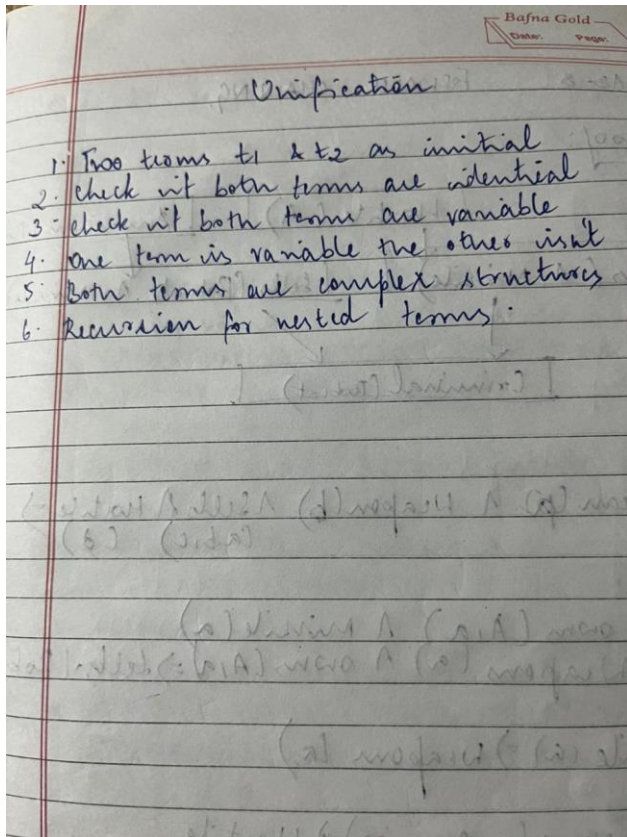 Bafna Gold
Date: Page:
Unification
1. Two terms t1 & t2 as initial
2. check if both terms are idential
3. check if both terms are variable
4. one term is variable the other isn't
5. Both terms are complex structures
6. Recursion for nested terms.